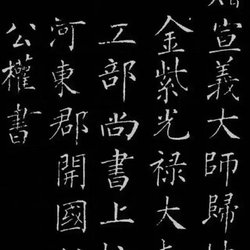 宣義大師歸
金紫光禄大
工部尚書上
河東郡開國
公權書